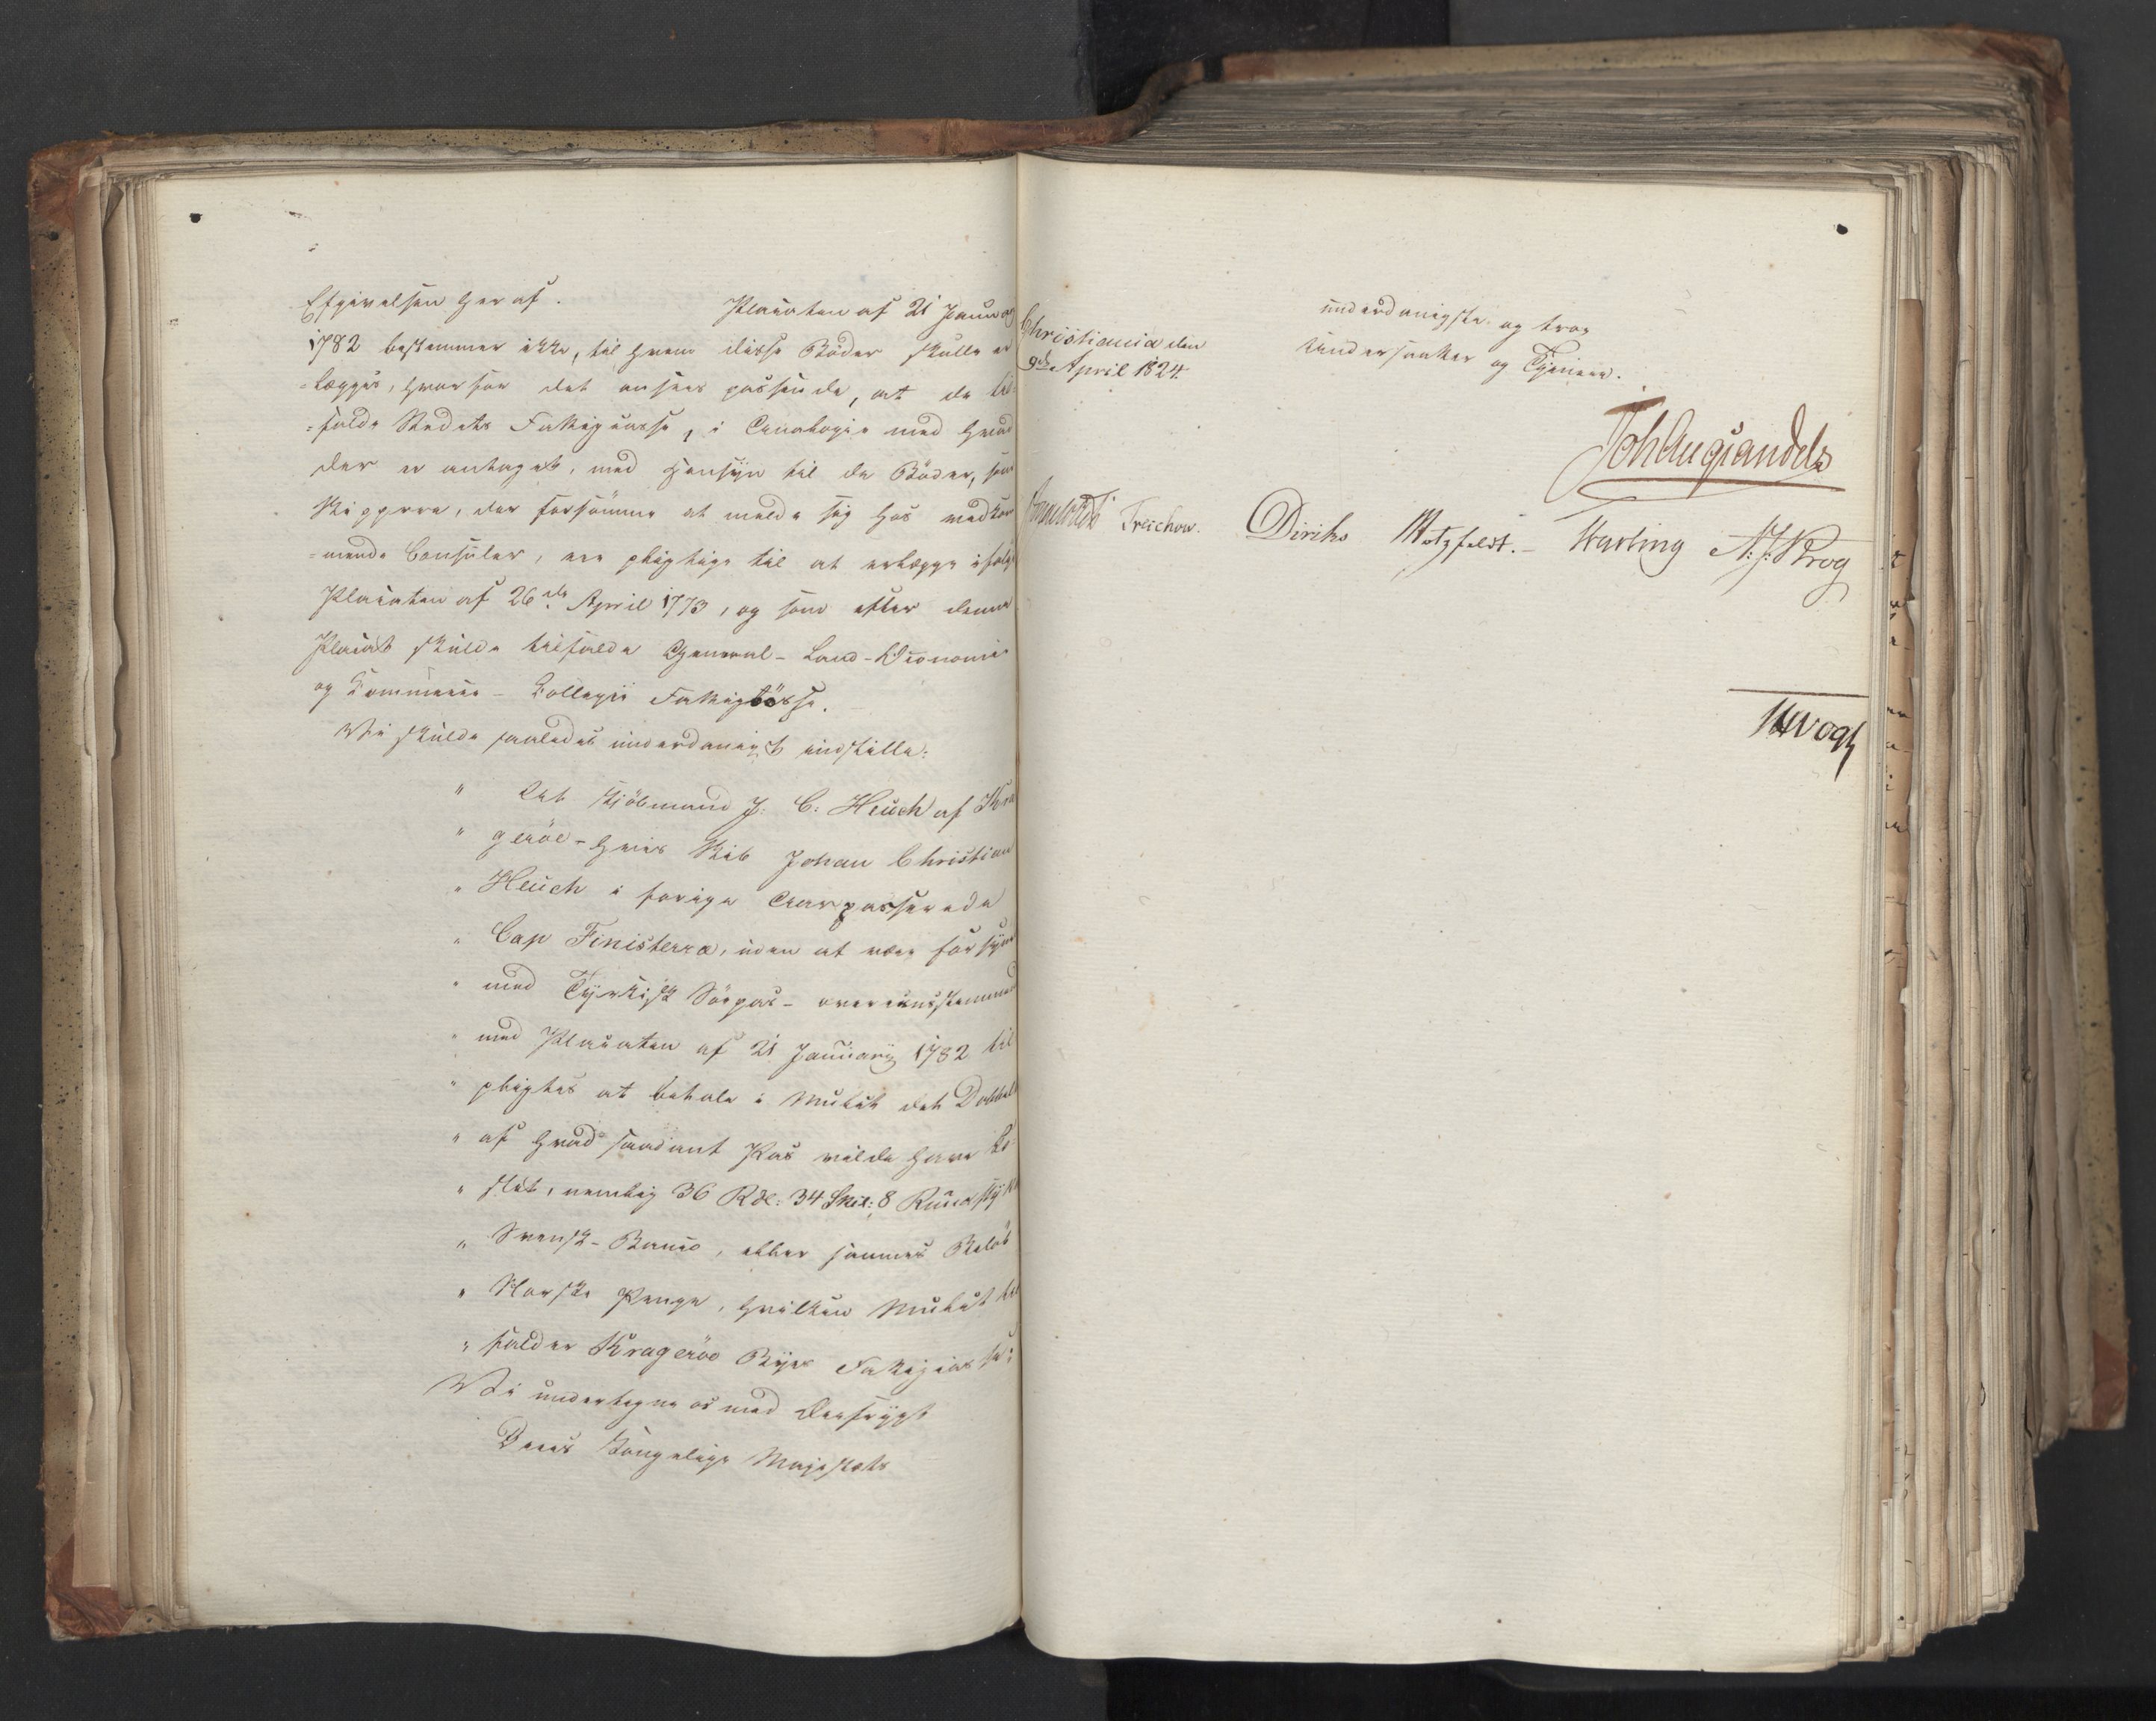 Efgivelsen heraf. Placaten af 21 Januar
1782 bestemmer ikke, til hvem disse Böder skulle er
=lægges, hvorfor det ansees passende, at de til=
=falde Stedets Fattigcasse, i Analogie med hvad
der er antaget, med Hensyn til de Böder, som
Skippere, der forsömme at melde sig hos vedkom
=mende Consuler, ere pligtige til at erlægge ifölge
Placaten af 26de April 1773, og som efter denne
Placat skulde tilfalde General-Land-Oeconomie
og Commerce-Collegii Fattigbösse.
Vi skulde saaledes underdanigst indstille:
" At Kjöbmand J. C. Heuch af Kra
" geröe - hvis Skib Johan Christian
" Heuch i forige Aar passerede
" Cap Finisterra, uden at være forsynet
" med Tyrkisk Söepas - overeensstemmende
" med Placaten af 21 Januarii 1782 til
" pligtes at betale i Mulct det Dobbelte
" af hvad saadant Pas vilde have ko
" stet, nemlig 36 Rdl: 34 Skil: 8 Rundstykker
" Svensk-Banco, eller sammes Belöb
" Norske Penge, hvilken Mulct til
" falder Krageröe Byes Fattigcasse:
Vi undertegne os med Ærefrygt
Deres Kongelige Majestæts
Christiania den
9de April 1824.
underdanigste og troe
Undersaatter og Tjenere.
Joh Aug Sandels
Treschow. Diriks Motzfeldt. - Fasting A: J: Krog
JH Vogt